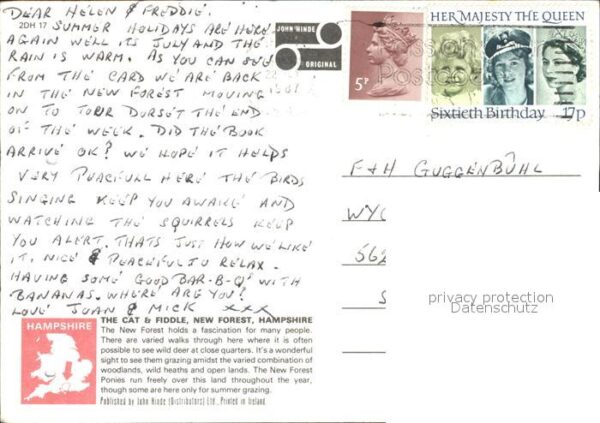 DEAR HELEN & FREDDIE.
2DH 17 SUMMER HOLIDAYS ARE HERE
AGAIN WELL ITS JULY AND THE
RAIN IS WARM. AS YOU CAN SEE
FROM THE CARD WE ARE BACK
IN THE NEW FOREST MOVING
ON TO TOUR DORSET THE END
OF THE WEEK. DID THE BOOK
ARRIVE OK? WE HOPE IT HELPS
VERY PEACEFULL HERE THE BIRDS
SINGING KEEP YOU AWAKE AND
WATCHING THE SQUIRRELS KEEP
YOU ALERT. THATS JUST HOW WE LIKE
IT, NICE & PEACEFUL TO RELAX.
HAVING SOME GOOD BAR-B-Q' WITH
BANANAS. WHERE ARE YOU?
LOVE JOAN & MICK xxx
HAMPSHIRE
THE CAT & FIDDLE, NEW FOREST, HAMPSHIRE
The New Forest holds a fascination for many people.
There are varied walks through here where it is often
possible to see wild deer at close quarters. It's a wonderful
sight to see them grazing amidst the varied combination of
woodlands, wild heaths and open lands. The New Forest
Ponies run freely over this land throughout the year,
though some are here only for summer grazing.
Published by John Hinde (Distributors) Ltd., Printed in Ireland
JOHN HINDE
ORIGINAL
5P
HER MAJESTY THE QUEEN
Sixtieth Birthday 17p
F & H GUGGENBÜHL
WYC
562
S
privacy protection
Datenschutz